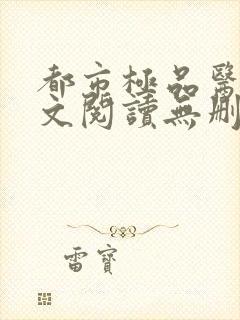 都市極品醫
文閱讀無刪
雷寶